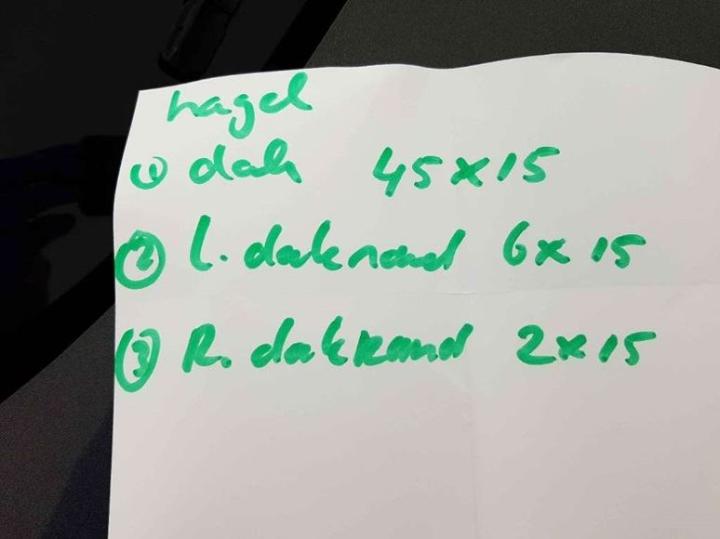 hagel
① dak 45x15
② l. dakrand 6x15
③ R. dakrand 2x15